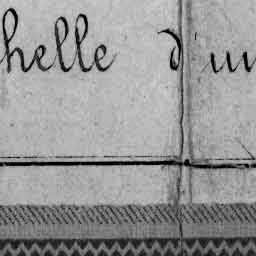 helle d'un